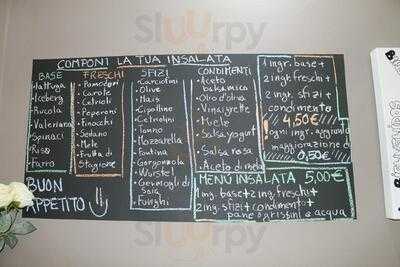 COMPONI LA TUA INSALATA
BASE
• lattuga
• Iceberg
• Rucola
• Valeriana
• Spinaci
• Riso
• Farro
FRESCHI
• Pomodori
• Carote
• Cetrioli
• Peperoni
• Finocchi
• Sedano
• Mele
• Frutta di
Stagione
SFIZI
• Carciofini
• Olive
• Mais
• Cipolline
• Cetriolini
• Tonno
• Mozzarella
• Fontina
• Gorgonzola
• Würstel
• Germogli di
Soia
• Funghi
CONDIMENTI
• Aceto
balsamica
• Olio d'oliva
• Vinaigrette
• Miele
• Salsa yogurt
• Salsa rosa
• Aceto di mele
1 ingr. base +
2 ingr. freschi +
2 ingr. sfizi +
condimento
4,50€
! ogni ingr. aggiunto
maggiorazione di
0,50€
MENÙ INSALATA 5,00€
1 ing. base + 2 ing. freschi +
2 ing. sfizi + condimento +
pane o grissini e acqua
BUON
APPETITO
Sluurpy